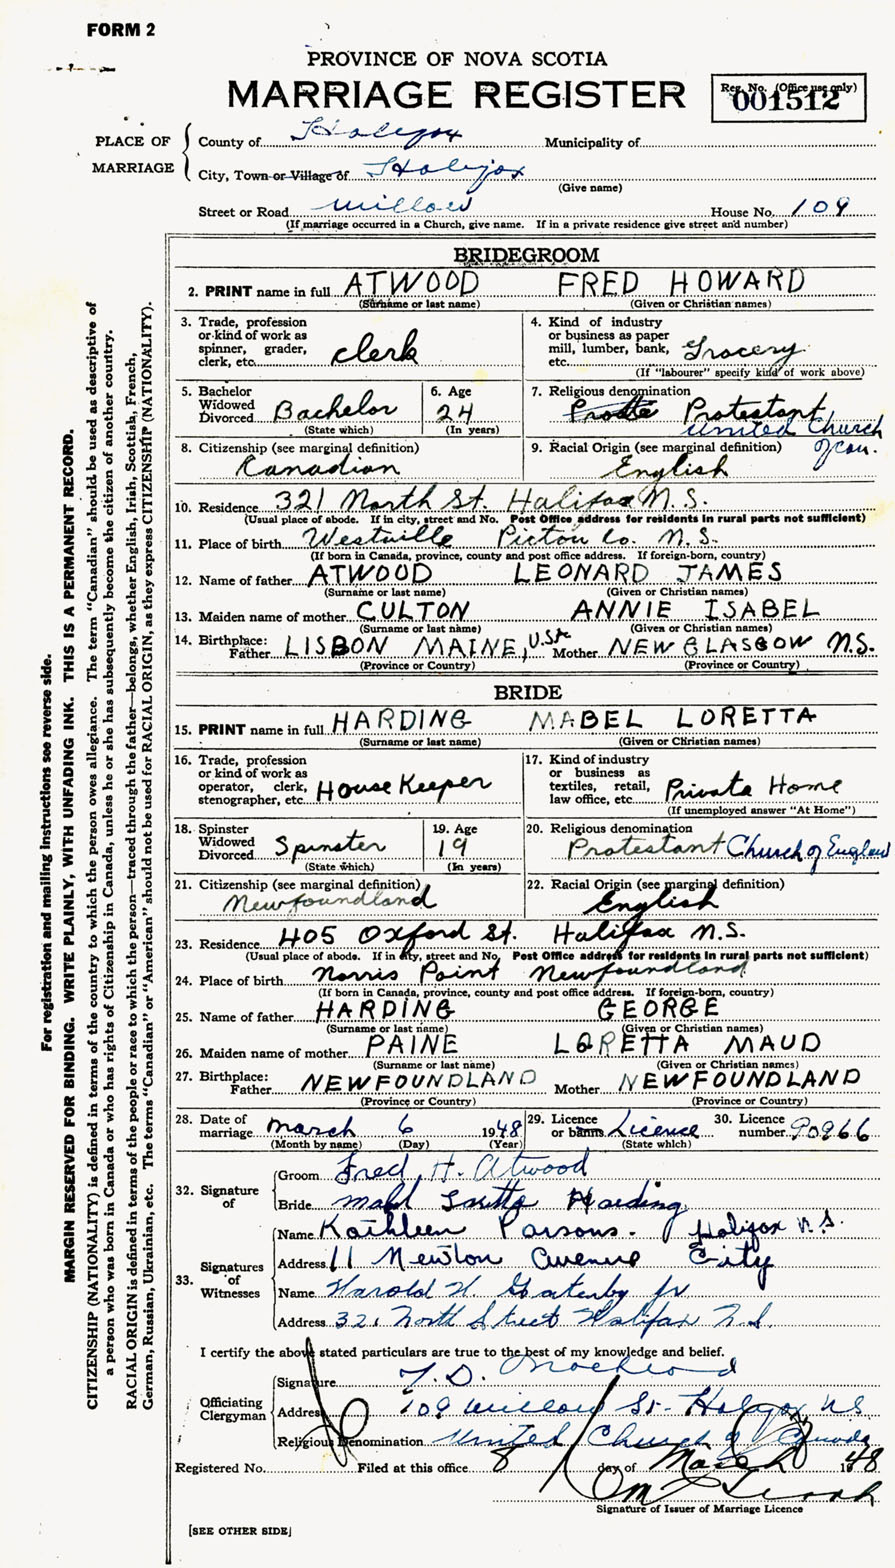 FORM 2
PROVINCE OF NOVA SCOTIA
MARRIAGE REGISTER
Reg. No. (Office use only)
001512
PLACE OF MARRIAGE
County of Halifax Municipality of
City, Town or Village of Halifax
(Give name)
Street or Road Willow House No. 109
(If marriage occurred in a Church, give name. If in a private residence give street and number)
BRIDEGROOM
2. PRINT name in full ATWOOD FRED HOWARD
(Surname or last name) (Given or Christian names)
3. Trade, profession or kind of work as spinner, grader, clerk, etc. Clerk
4. Kind of industry or business as paper mill, lumber, bank, etc. Grocery
(If "labourer" specify kind of work above)
5. Bachelor Widowed Divorced Bachelor
(State which)
6. Age 24
(In years)
7. Religious denomination Protestant
United Church of Can.
8. Citizenship (see marginal definition)
Canadian
9. Racial Origin (see marginal definition)
English
10. Residence 321 North St. Halifax N.S.
(Usual place of abode. If in city, street and No. Post Office address for residents in rural parts not sufficient)
11. Place of birth Westville Pictou Co. N.S.
(If born in Canada, province, county and post office address. If foreign-born, country)
12. Name of father ATWOOD LEONARD JAMES
(Surname or last name) (Given or Christian names)
13. Maiden name of mother CULTON ANNIE ISABEL
(Surname or last name) (Given or Christian names)
14. Birthplace: Father LISBON MAINE, USA Mother NEW GLASGOW N.S.
(Province or Country) (Province or Country)
BRIDE
15. PRINT name in full HARDING MABEL LORETTA
(Surname or last name) (Given or Christian names)
16. Trade, profession or kind of work as operator, clerk, stenographer, etc. House Keeper
17. Kind of industry or business as textiles, retail, law office, etc. Private Home
(If unemployed answer "At Home")
18. Spinster Widowed Divorced Spinster
(State which)
19. Age 19
(In years)
20. Religious denomination
Protestant Church of England
21. Citizenship (see marginal definition)
Newfoundland
22. Racial Origin (see marginal definition)
English
23. Residence 405 Oxford St. Halifax N.S.
(Usual place of abode. If in city, street and No. Post Office address for residents in rural parts not sufficient)
24. Place of birth Norris Point Newfoundland
(If born in Canada, province, county and post office address. If foreign-born, country)
25. Name of father HARDING GEORGE
(Surname or last name) (Given or Christian names)
26. Maiden name of mother PAINE LORETTA MAUD
(Surname or last name) (Given or Christian names)
27. Birthplace: Father NEWFOUNDLAND Mother NEWFOUNDLAND
(Province or Country) (Province or Country)
28. Date of marriage March 6 1948
(Month by name) (Day) (Year)
29. Licence or banns Licence
(State which)
30. Licence number 90966
32. Signature of
Groom Fred H. Atwood
Bride Mabel Loretta Harding
33. Signatures of Witnesses
Name Kathleen Parsons. Halifax N.S.
Address 11 Newton Avenue City
Name Harold W. Gatenby Jr
Address 321 North Street Halifax N.S.
I certify the above stated particulars are true to the best of my knowledge and belief.
Officiating Clergyman
Signature T. D.
Address 109 Willow St. Halifax NS
Religious Denomination United Church of Canada
Registered No. Filed at this office 8 day of March 1948
Signature of Issuer of Marriage Licence
[SEE OTHER SIDE]
For registration and mailing instructions see reverse side.
MARGIN RESERVED FOR BINDING. WRITE PLAINLY, WITH UNFADING INK. THIS IS A PERMANENT RECORD.
CITIZENSHIP (NATIONALITY) is defined in terms of the country to which the person owes allegiance. The term "Canadian" should be used as descriptive of
a person who was born in Canada or who has rights of Citizenship in Canada, unless he or she has subsequently become the citizen of another country.
RACIAL ORIGIN is defined in terms of the people or race to which the person—traced through the father—belongs, whether English, Irish, Scottish, French,
German, Russian, Ukrainian, etc. The terms "Canadian" or "American" should not be used for RACIAL ORIGIN, as they express CITIZENSHIP (NATIONALITY).